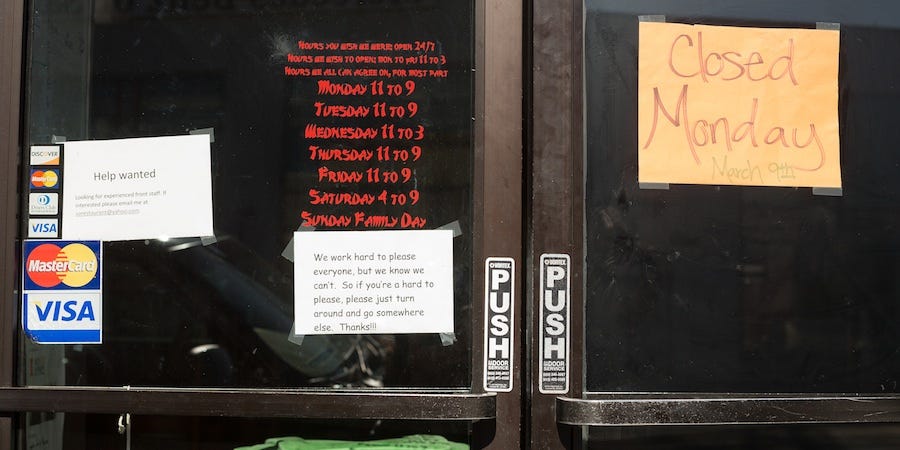 DISCOVER
MasterCard
Diners Club
VISA
MasterCard
VISA
Help wanted
Looking for experienced front staff. If
interested please email me at
HOURS YOU WISH WE WERE: OPEN 24/7
HOURS WE WISH TO OPEN: MON TO FRI 11 TO 3
HOURS WE ALL CAN AGREE ON, FOR MOST PART
MONDAY 11 TO 9
TUESDAY 11 TO 9
WEDNESDAY 11 TO 3
THURSDAY 11 TO 9
FRIDAY 11 TO 9
SATURDAY 4 TO 9
SUNDAY FAMILY DAY
We work hard to please
everyone, but we know we
can't. So if you're a hard to
please, please just turn
around and go somewhere
else. Thanks!!!
PUSH
DOOR
SERVICE
PUSH
DOOR
SERVICE
Closed
Monday
March 9th